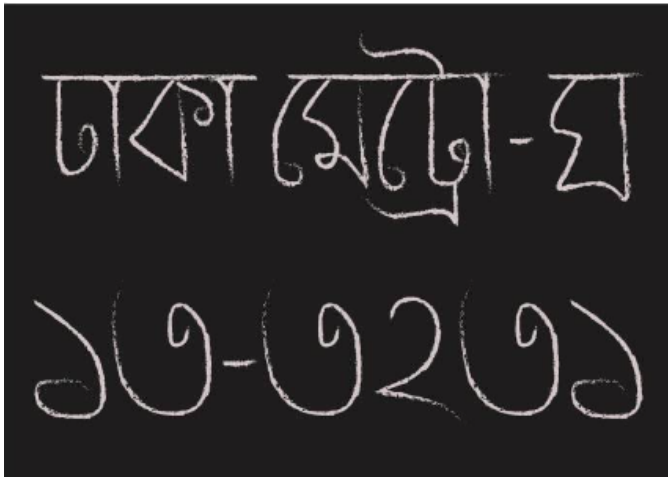 ঢাকা মেট্রো-ঘ
১৩-৩২৩১